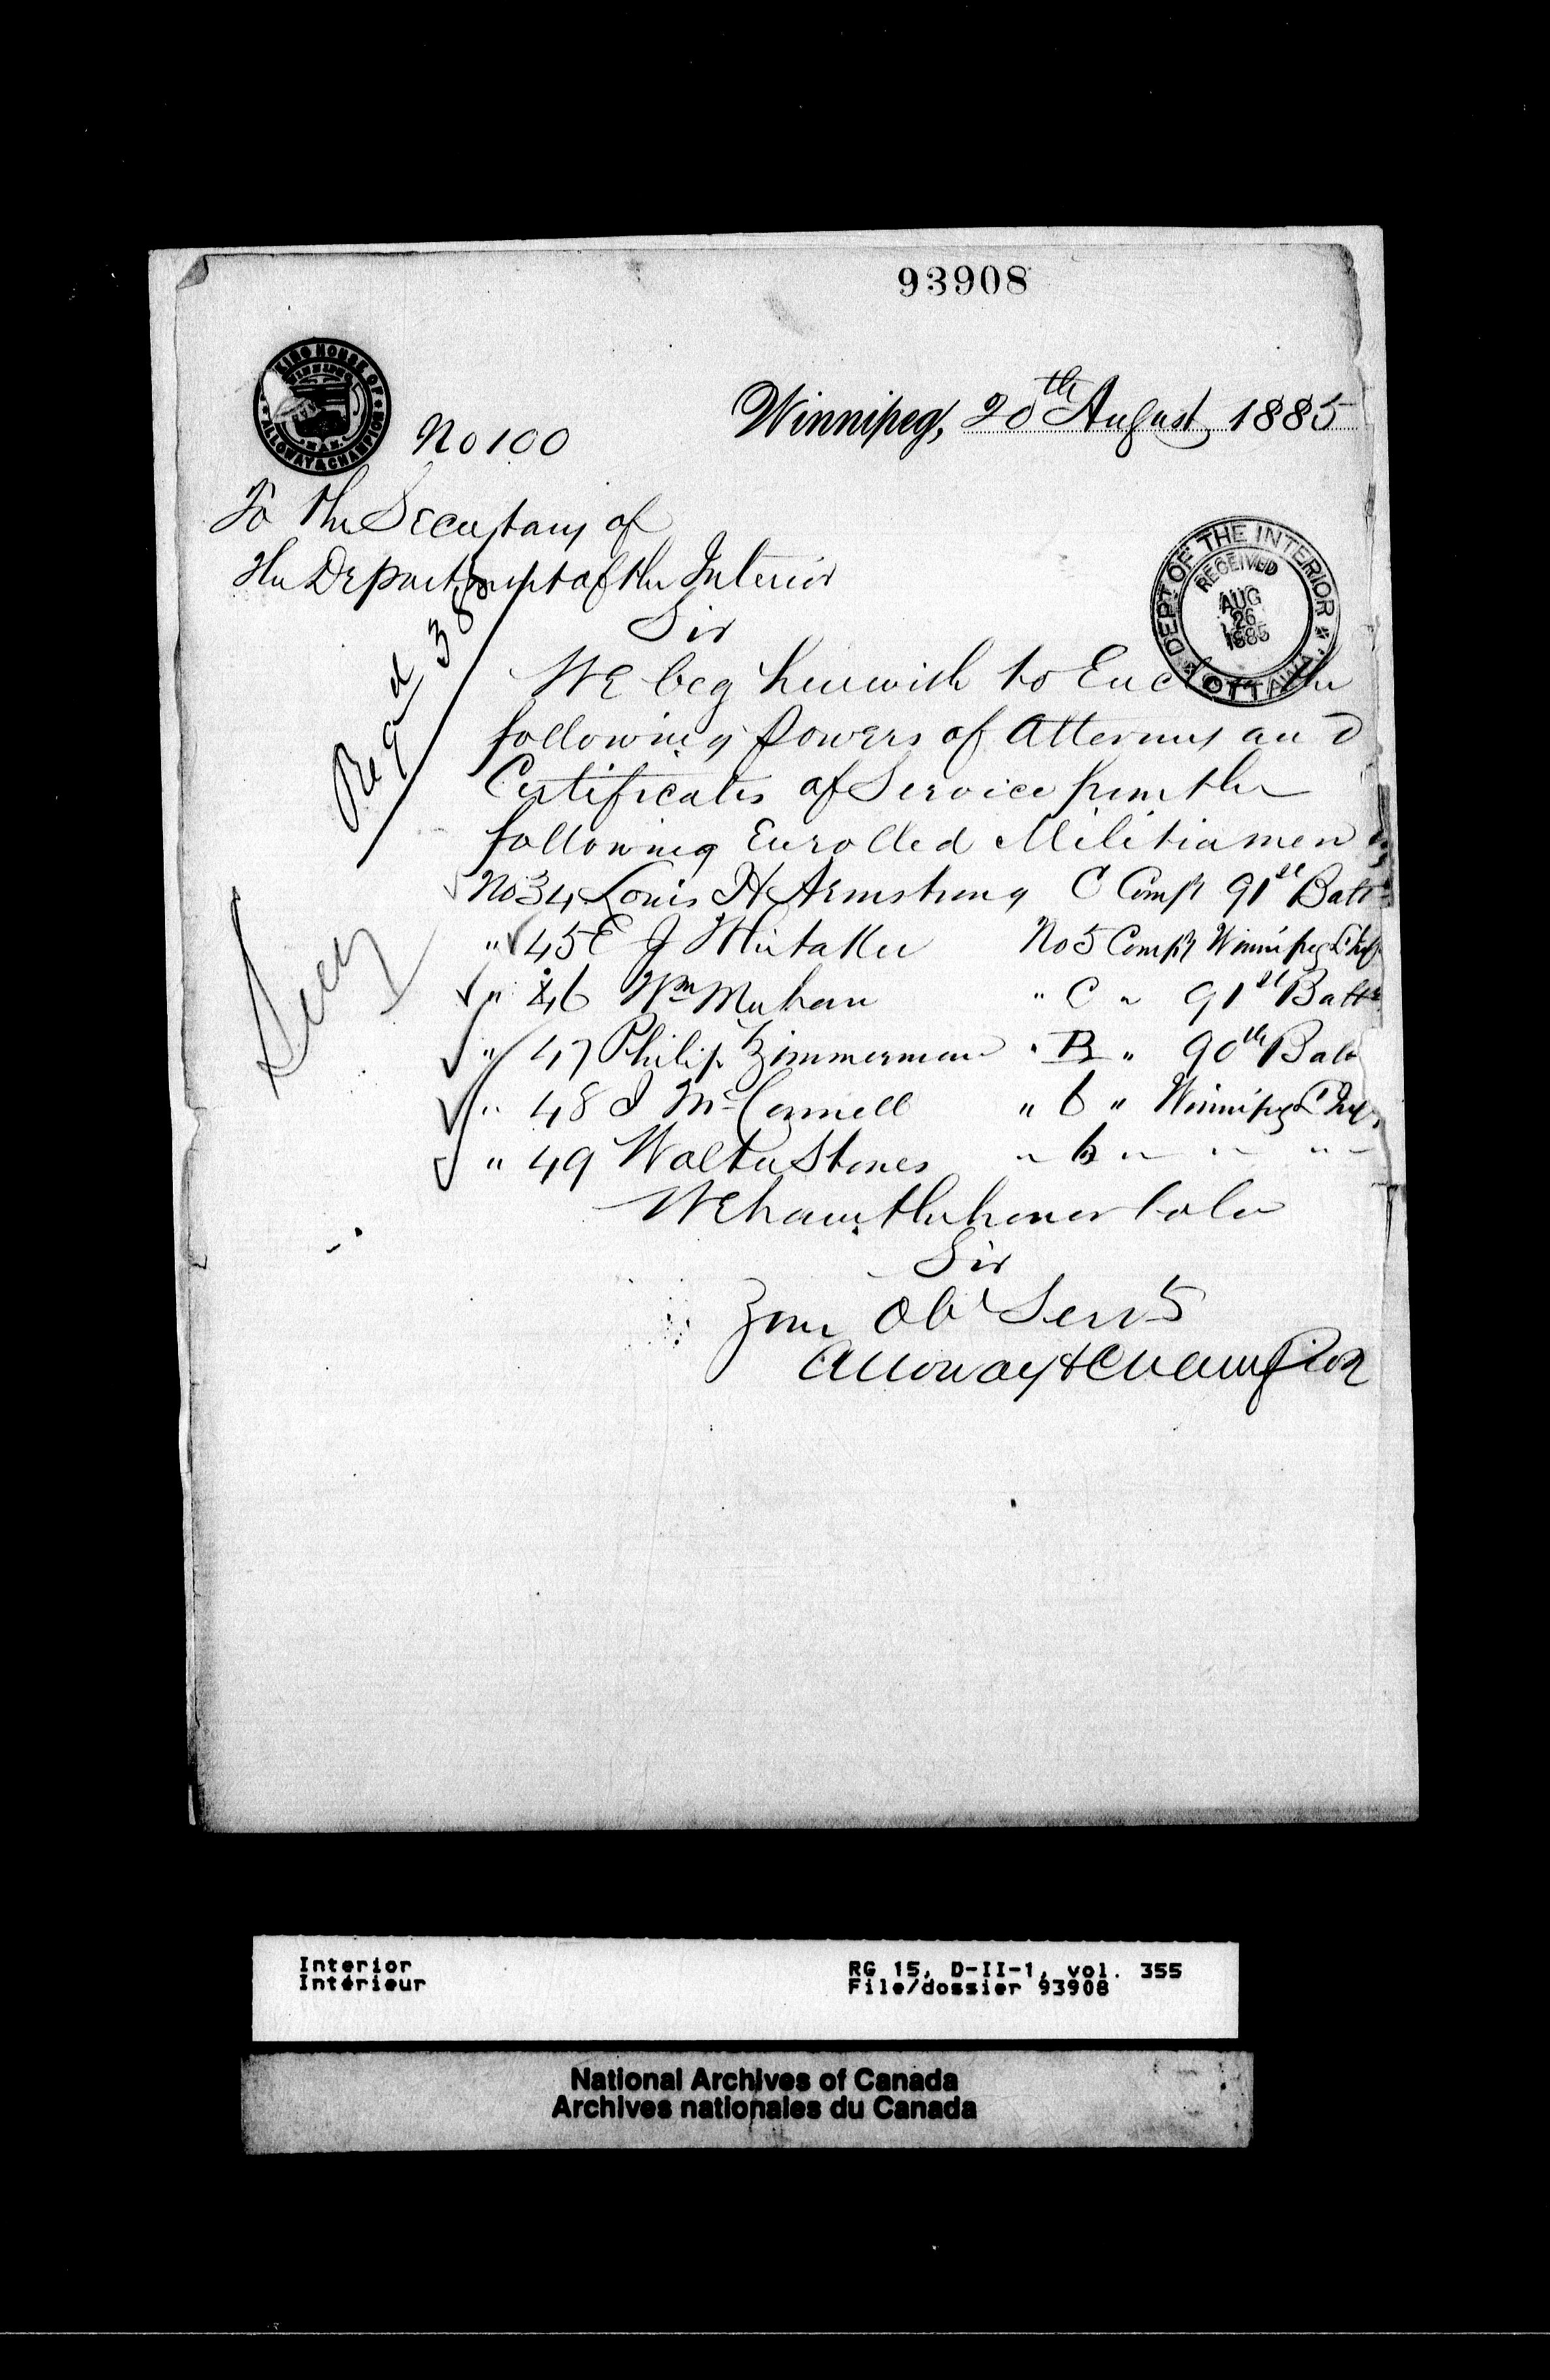 93908
KING HOUSE OF
WINNIPEG
MAN.
ALLOWAY & CHAMPION
No 100
Winnipeg, 20th August 1885
To the Secretary of
the Department of the Interior
DEPT OF THE INTERIOR
RECEIVED
AUG
26
1885
OTTAWA
Sir
Regd 38
We beg herewith to Enc the
following Powers of Attorney and
Certificates of Service from the
following Enrolled Militiamen
No 34 Louis H Armstrong C Compy 91st Batt
" 45 E J Whitaker No 5 Compy Winnipeg L Inf
" 46 Wm Mahan " C " 91st Batt
" 47 Philip Zimmerman " B " 90th Batt
" 48 J McConnell " 6 " Winnipeg L Inf
" 49 Walter Stones " 6 " " "
We have the honor to be
Sir
Your Obt Servts
Alloway & Champion
Interior
Intérieur
RG 15, D-II-1, vol. 355
File/dossier 93908
National Archives of Canada
Archives nationales du Canada